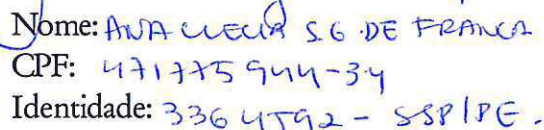 Nome: ANA CLECIA S.G. DE FRANCA
CPF: 471775944-34
Identidade: 3364592 - SSP/PE.